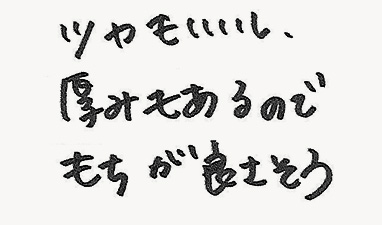 ツヤもいいし、
厚みもあるので
もちが良さそう